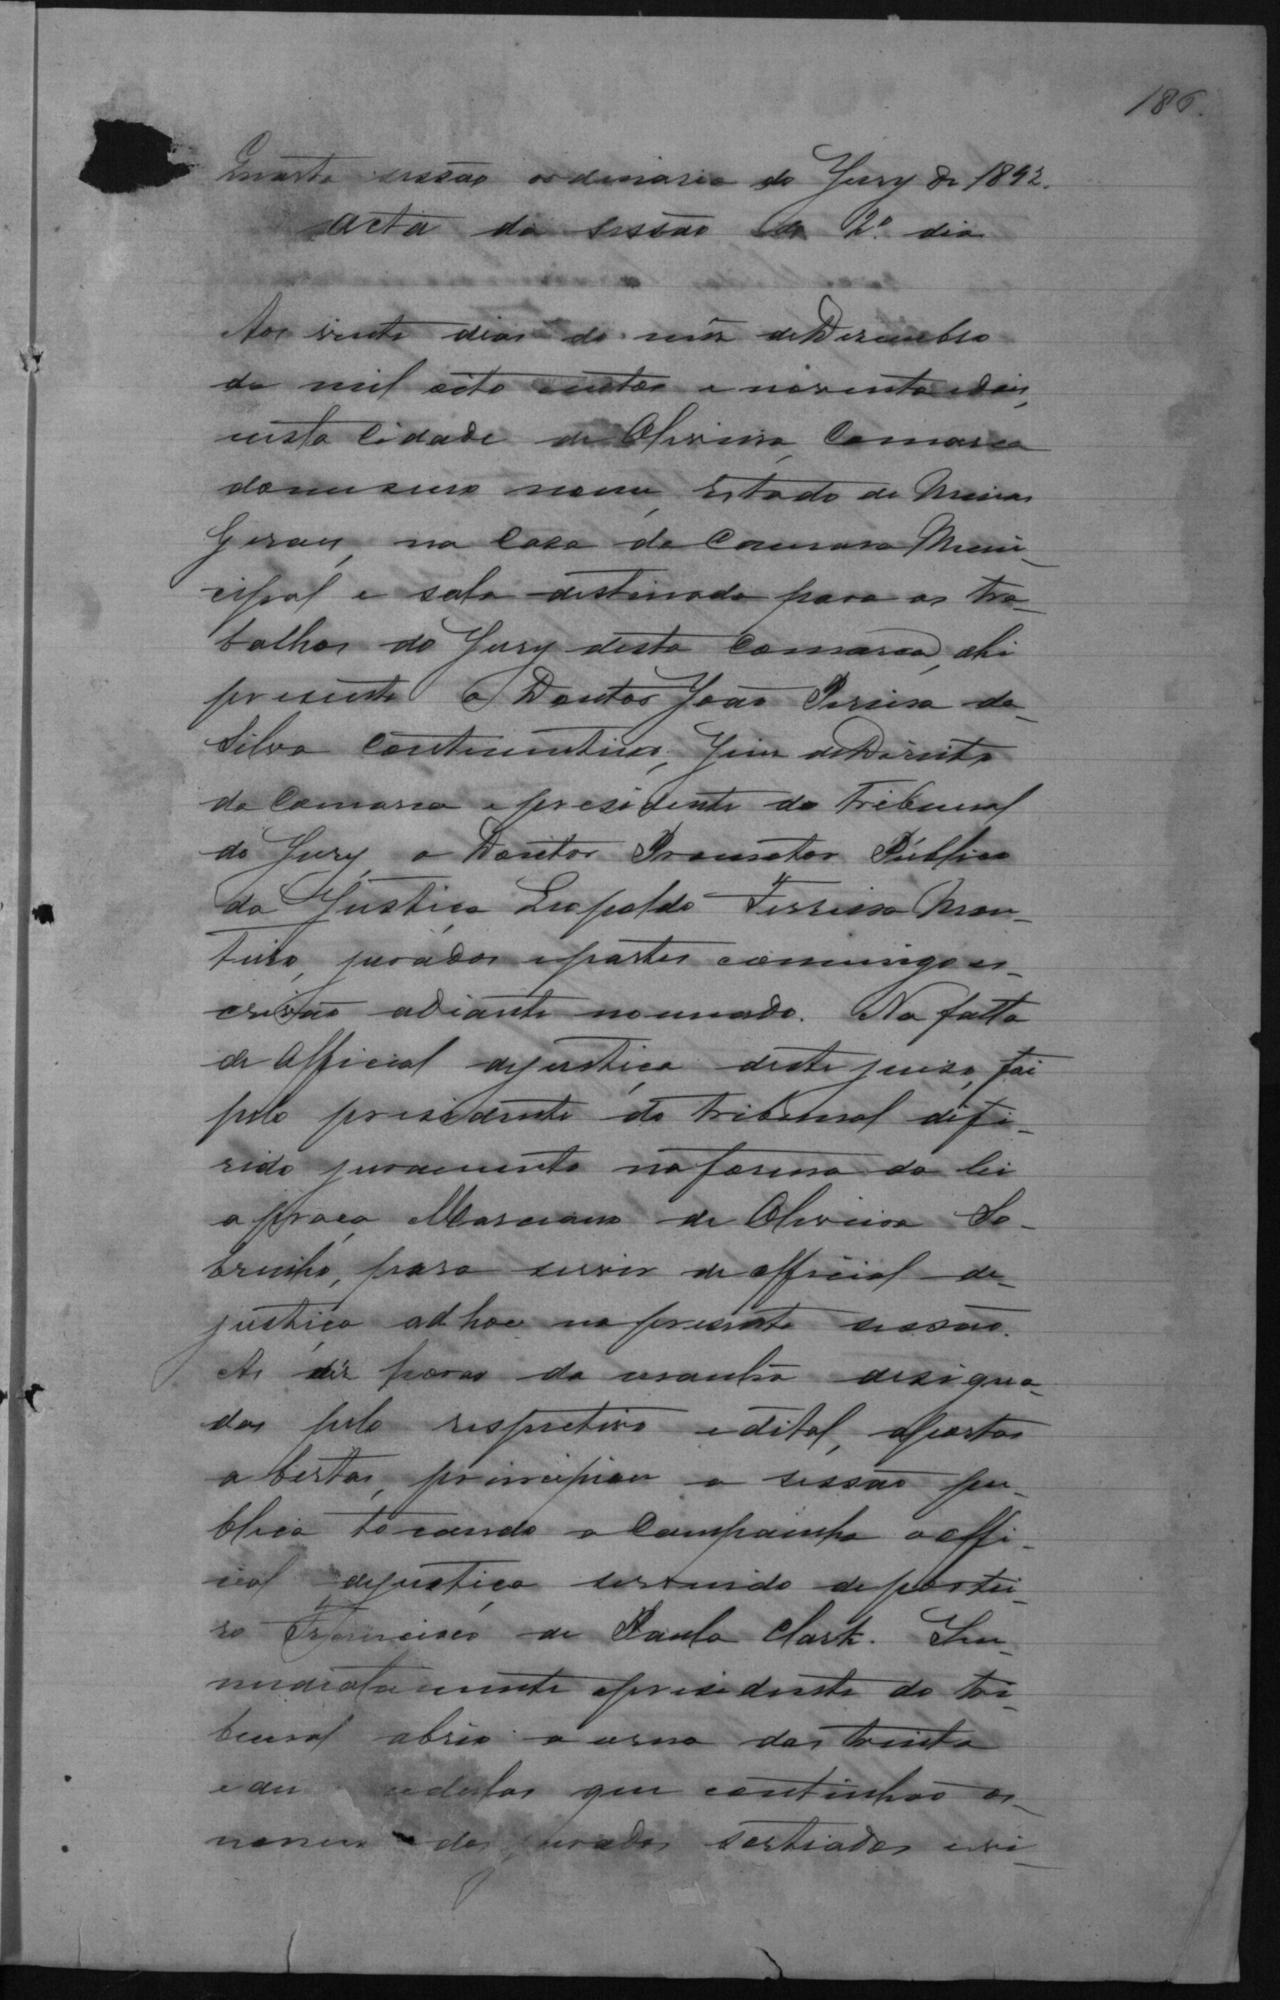 186.
Quarta sessão ordinaria do Jury de 1892.
Acta da sessão do 2º dia
Aos vinte dias do mês de Dezembro
de mil oito centos e noventa e dois,
nesta Cidade de Oliveira, Comarca
do mesmo nome, Estado de Minas
Geraes, na Casa da Camara Muni-
cipal e sala destinada para os tra-
balhos do Jury desta Comarca, ahi
presente o Doutor João Pereira da
Silva Continentino, Juiz de Direito
da Comarca e presidente do Tribunal
do Jury, o Doutor Promotor Publico
da Justiça Leopoldo Ferreira Mon-
teiro, jurados e partes commigo es-
crivão adiante nomeado. Na falta
de official de justiça deste juizo, foi
pelo presidente do tribunal defe-
rido juramento na forma da lei
a praça Marciano de Oliveira So-
brinho, para servir de official de
justiça ad hoc na presente sessão.
As dez horas da manhã designa-
das pelo respectivo edital, a portas
abertas, principiou a sessão pu-
blica tocando a Campainha o offi-
cial de justiça servindo de portei-
ro Francisco de Paula Clark. Im-
mediatamente o presidente do tri-
bunal abrio a urna das trinta
e cedulas que continhão os
nomes dos jurados sorteados e vi-